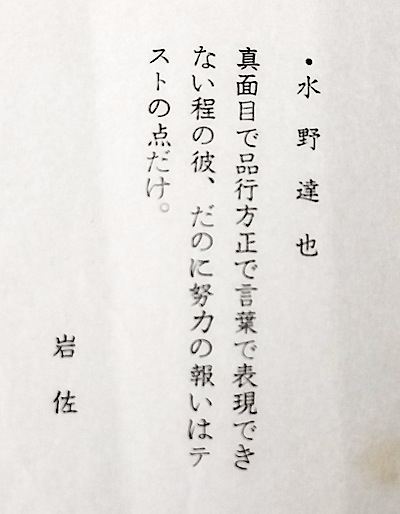 ・水野達也
真面目で品行方正で言葉で表現でき
ない程の彼、だのに努力の報いはテ
ストの点だけ。
岩佐